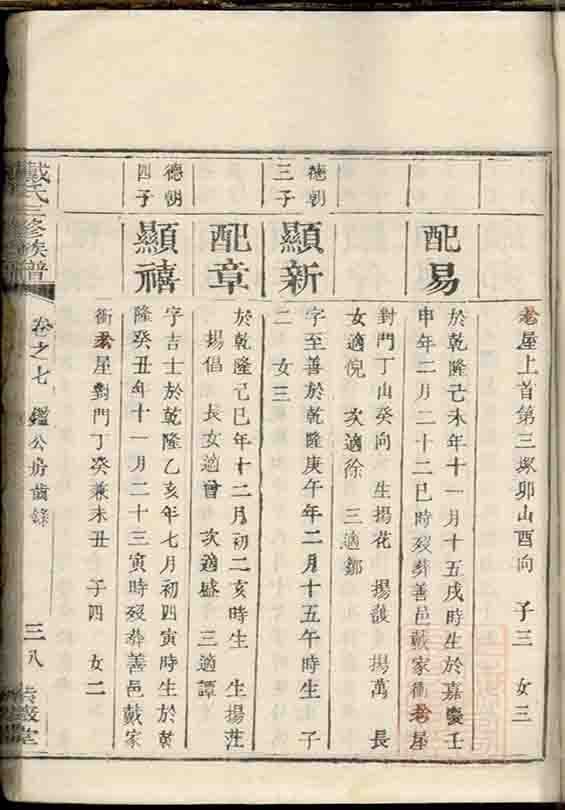 老屋上首第三塚卯山酉向　子三　女三
配易
於乾隆己未年十一月十五戌時生於嘉慶壬
申年二月二十二巳時歿葬善邑戴家衝老屋
對門丁山癸向　生揚花　揚護　揚萬　長
女適倪　次適徐　三適鄒
德朝
三子
顯新
字至善於乾隆庚午年二月十五午時生　子
二　女三
配章
於乾隆己巳年十二月初二亥時生　生揚茳
揚倡　長女適曾　次適盛　三適譚
德朝
四子
顯禧
字吉士於乾隆乙亥年七月初四寅時生於乾
隆癸丑年十一月二十三寅時歿葬善邑戴家
衝老屋對門丁癸兼未丑　子四　女二
戴氏三修族譜
卷之七　鑑公房齒錄
三八